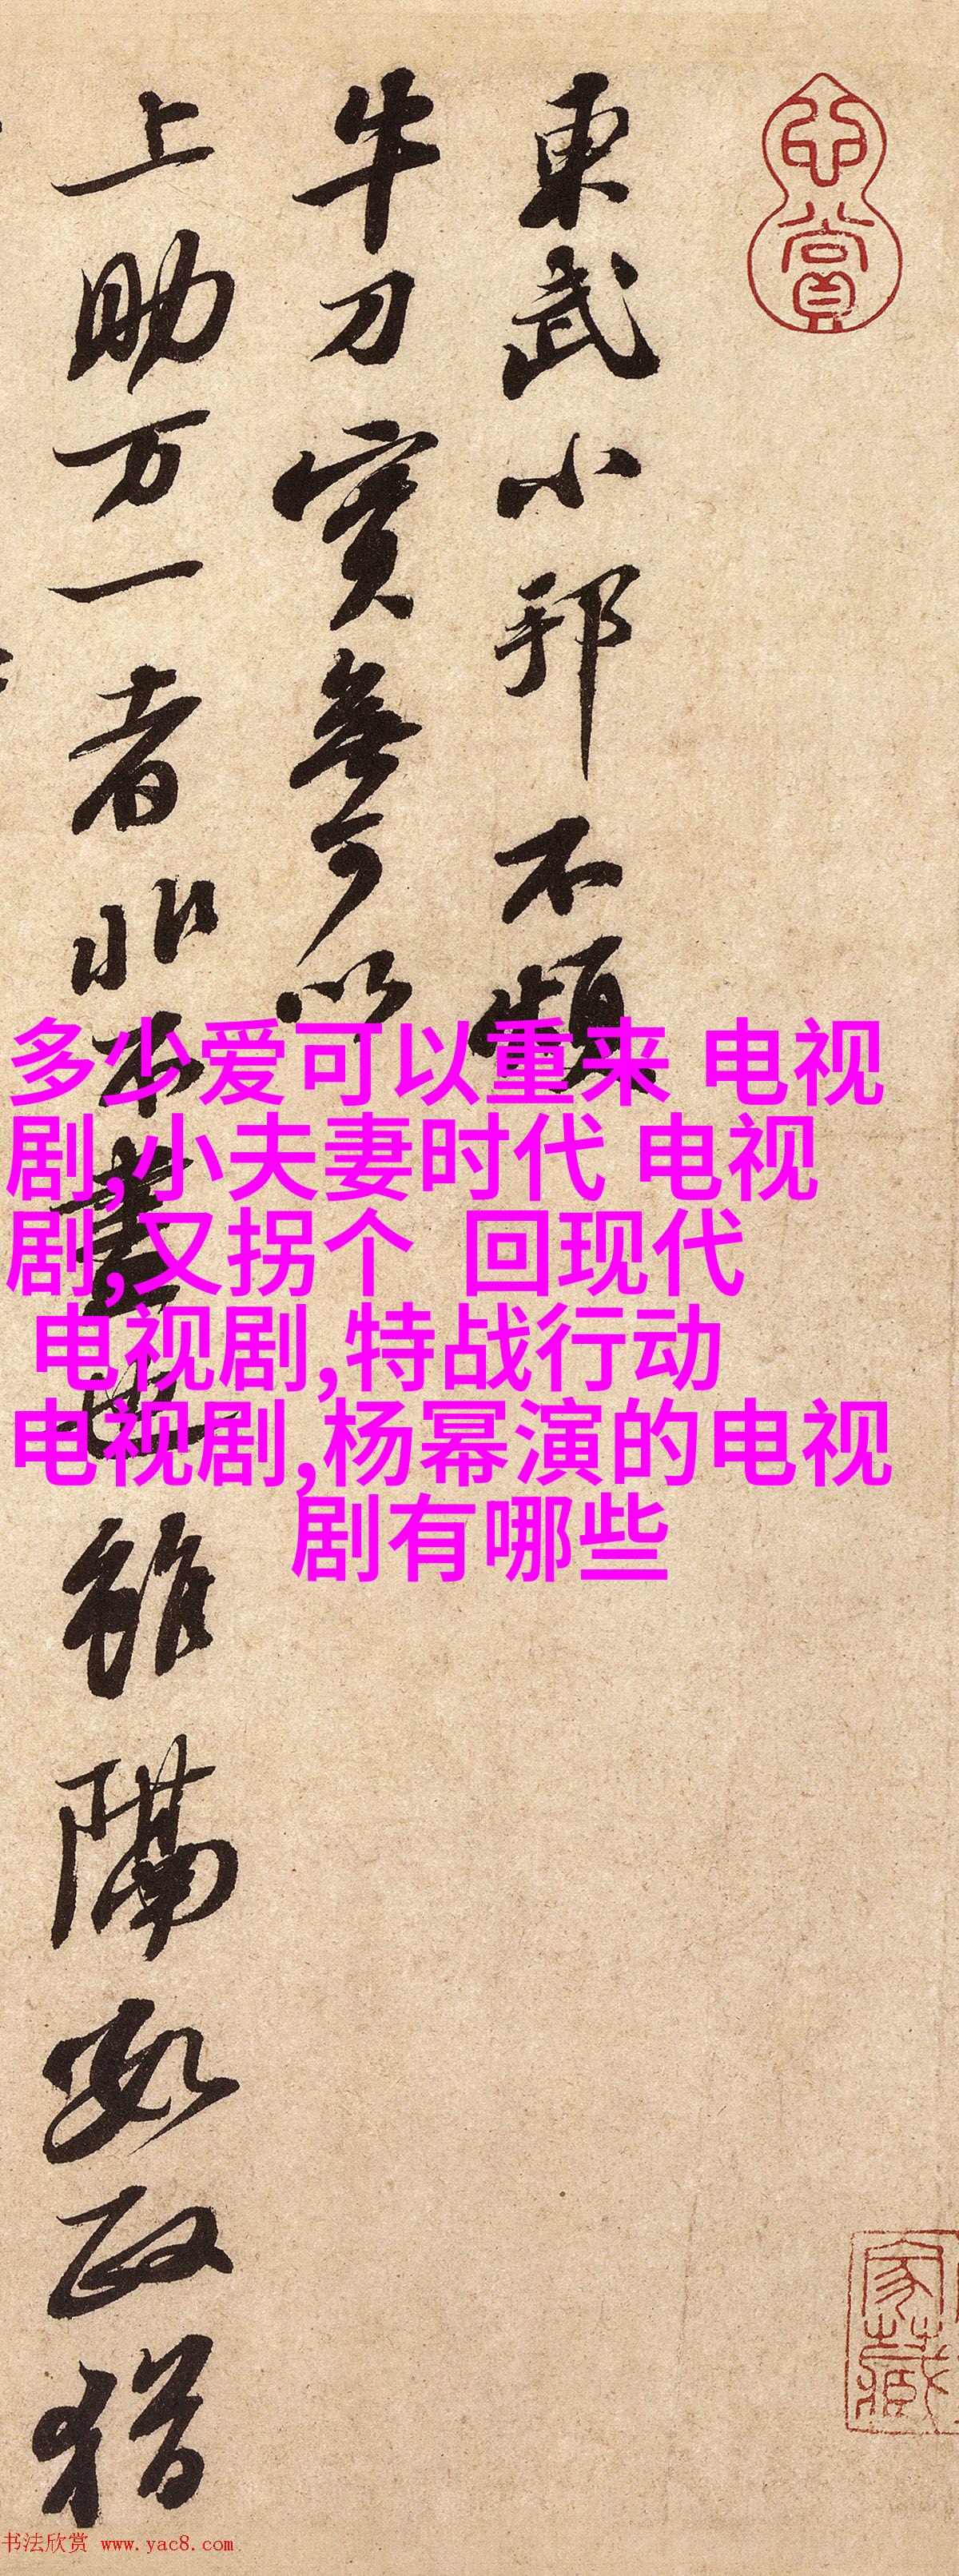 心賞
東武小邦不煩
牛刀實無可以
上助万一者非不盡也雖隔數政猶
多少爱可以重来 电视
剧,小夫妻时代 电视
剧,又拐个 回现代
电视剧,特战行动
电视剧,杨幂演的电视
剧有哪些
家藏
书法欣赏 www.yac8.com